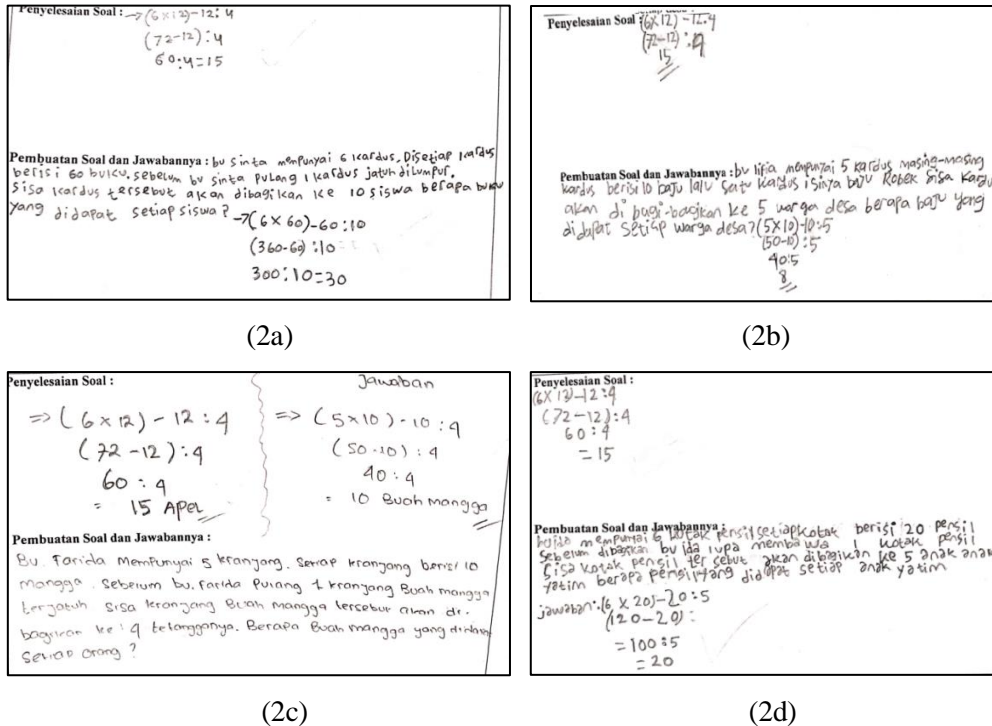 Penyelesaian Soal : → (6 x 12) - 12 : 4
(72-12) : 4
60 : 4 = 15
Pembuatan Soal dan Jawabannya : bu sinta mempunyai 6 kardus. Disetiap kardus
berisi 60 buku. sebelum bu sinta pulang 1 kardus jatuh dilumpur.
sisa kardus tersebut akan dibagikan ke 10 siswa berapa buku
yang didapat setiap siswa?
→ (6 x 60) - 60 : 10
(360-60) : 10
300 : 10 = 30
(2a)
Penyelesaian Soal : (6x12) - 12 : 4
(72-12) : 4
15
Pembuatan Soal dan Jawabannya : bu lifia mempunyai 5 kardus masing-masing
kardus berisi 10 baju lalu satu kardus isinya baju Robek sisa
akan di bagi-bagikan ke 5 warga desa berapa baju yang
didapat setiap warga desa? (5x10)-10:5
(50-10) : 5
40:5
8
(2b)
Penyelesaian Soal :
⇒ (6 x 12) - 12 : 4
(72 - 12) : 4
60 : 4
= 15 Apel
Jawaban
⇒ (5 x 10) - 10 : 4
(50-10) : 4
40 : 4
= 10 Buah mangga
Pembuatan Soal dan Jawabannya :
Bu. Farida Mempunyai 5 kranjang. Setiap kranjang berisi 10
mangga. Sebelum bu. Farida Pulang 1 kranjang Buah mangga
terjatuh sisa kranjang Buah mangga tersebut akan di.
bagikan ke : 4 tetangganya. Berapa Buah mangga yang
setiap orang ?
(2c)
Penyelesaian Soal :
(6 x 12) - 12 : 4
(72 - 12) : 4
60 : 4
= 15
Pembuatan Soal dan Jawabannya :
bu ida mempunyai 6 kotak pensil setiap kotak berisi 20 pensil
sebelum dibagikan bu ida lupa membawa 1 kotak pensil
sisa kotak pensil tersebut akan dibagikan ke 5 anak anak
yatim berapa pensil yang didapat setiap anak yatim
jawaban : (6 x 20) - 20 : 5
(120 - 20) :
= 100 : 5
= 20
(2d)